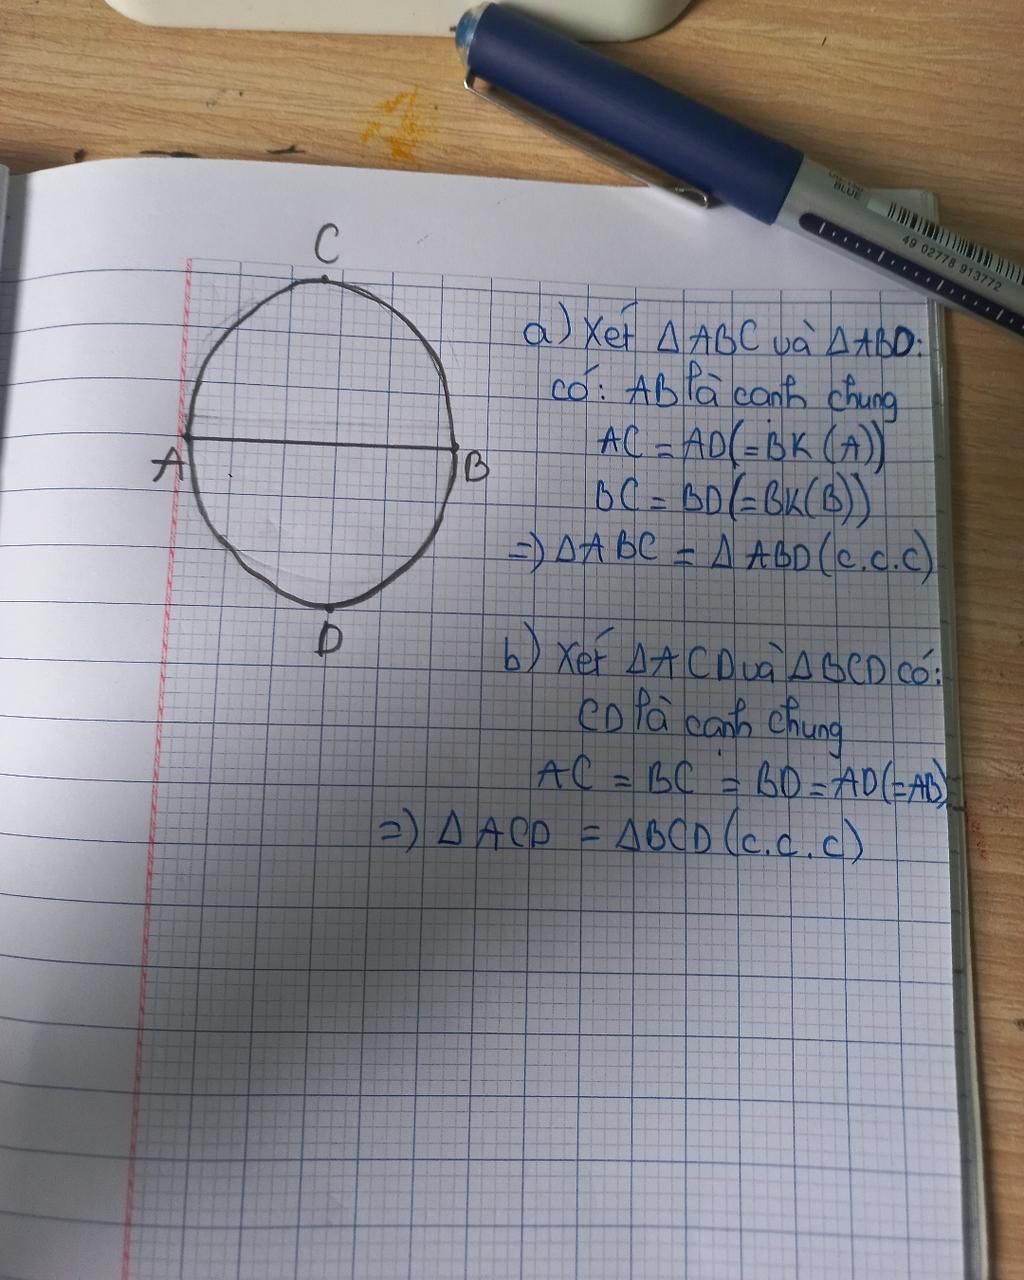 C
A
B
D
a) Xét Δ ABC và Δ ABD:
có: AB là cạnh chung
AC = AD (= BK (A))
BC = BD (= BK (B))
=) Δ ABC = Δ ABD (c.c.c)
b) Xét Δ ACD và Δ BCD có:
CD là cạnh chung
AC = BC = BD = AD (= AB)
=) Δ ACD = Δ BCD (c.c.c)
BLUE
49 02778 913772